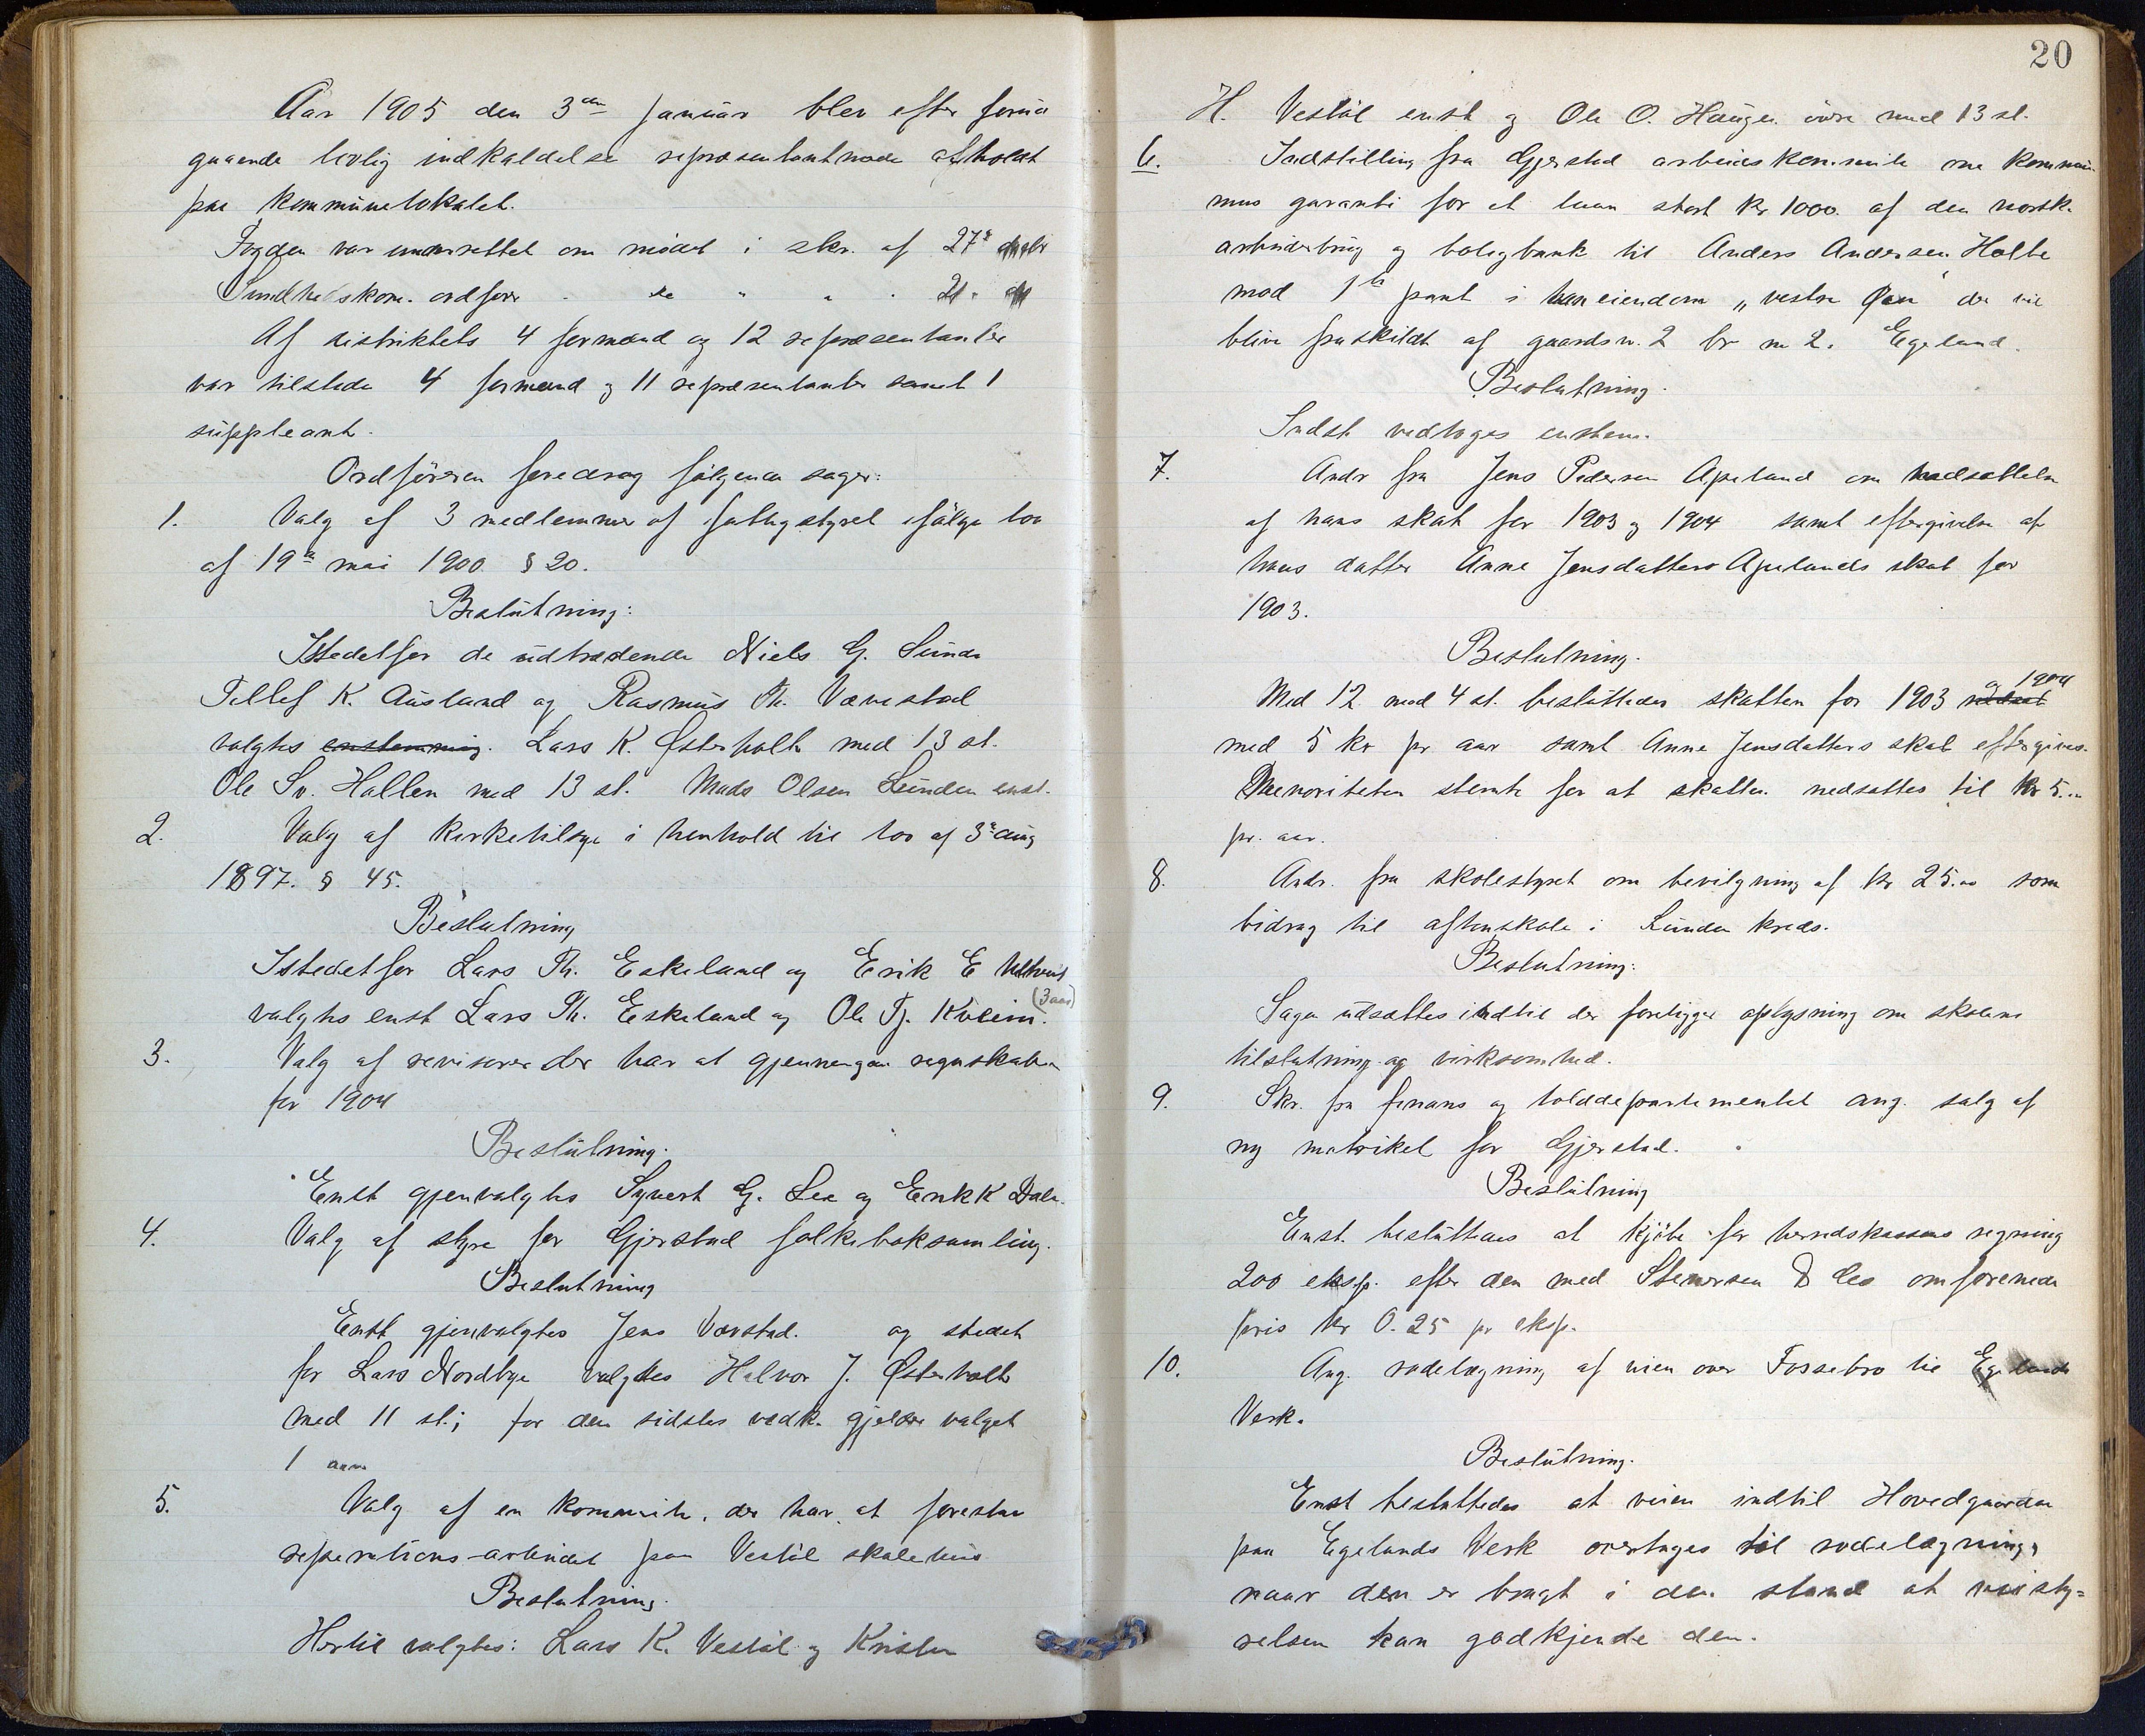 Aar 1905 den 3die Januar blev efter forud
gaaende lovlig indkaldelse repræsentantmøde afholdt
paa kommunelokalet.
Fogden var underrettet om mødet i skr. af 27de
Sundhedskom. ordfører - do " " - 21.
Af distriktets 4 formænd og 12 repræsentanter
var tilstede 4 formænd og 11 repræsentanter samt 1
suppleant.
Ordføreren foredrog følgende sager:
1. Valg af 3 medlemmer af fattigstyret ifølge lov
af 19de mai 1900 § 20.
Beslutning:
Istedetfor de udtrædende Niels G. Sunde
Tellef K. Ausland og Rasmus Th. Vævestad
valgtes enstemmig. Lars K. Østerholt med 13 st.
Ole Sv. Hallen med 13 st. Mads Olsen Lunden enst.
2. Valg af kirketilsyn i henhold til lov af 3de aug
1897. § 45.
Beslutning
Istedetfor Lars Th. Eskeland og Erik E
valgtes enst Lars Th. Eskeland og Ole Tj. Kveim. (3 aar)
3. Valg af revisorer der har at gjennemgaa regnskaben
for 1904
Beslutning.
Enst gjenvalgtes Syvert G. Lee og Erik K Dale.
4. Valg af styre for Gjerstad folkeboksamling.
Beslutning
Enst gjenvalgtes Jens Vævstad. og stedet
for Lars Nordbye valgtes Halvor J. Østerholt
med 11 st.; for den sidstes vedk. gjelder valget
1 aar
5. Valg af en kommite, der har at forestaa
reperations-arbeidet paa Vestøl skolehus
Beslutning.
Hertil valgtes: Lars K. Vestøl og Kristen
20
H. Vestøl enst og Ole O. Haugen øvre med 13 st.
6. Indstilling fra Gjerstad arbeiderkommite om kommu-
nens garanti for et laan stort kr 1000. af den norske
arbeiderbrug og boligbank til Anders Andersen Holte
mod 1ste pant i hans eiendom "vestre Øen" der vil
blive fraskildt af gaardsn. 2 br n 2. Egeland.
Beslutning.
Indst vedtoges enstem.
7. Andr fra Jens Pedersen Apeland om nedsættelse
af hans skat for 1903 og 1904 samt eftergivelse af
hans datter Anne Jensdatters Apelands skat for
1903.
Beslutning.
Med 12 mod 4 st. besluttedes skatten for 1903 nedsat og 1904
med 5 kr pr aar samt Anne Jensdatters skat eftergives.
Menoriteten stemte for at skatten nedsattes til kr 5.00
pr. aar.
8. Andr. fra skolestyret om bevilgning af kr 25.00 som
bidrag til aftenskole i Lunden kreds.
Beslutning:
Sagen udsættes indtil der foreligger oplysning om skolens
tilslutning og virksomhed.
9. Skr. fra finans og tolddepartementet ang. salg af
ny matrikel for Gjerstad.
Beslutning
Enst. besluttedes at kjøbe for herredskassens regning
200 eksp. efter den med Stenersen & Co omforenede
pris kr 0.25 pr eksp.
10. Ang. rodelægning af veien over Fossebro til Egelands
Verk.
Beslutning.
Enst besluttedes at veien indtil Hovedgaarden
paa Egelands Verk overtages til rodelægning,
naar den er bragt i den stand at veisty=
relsen kan godkjende den.